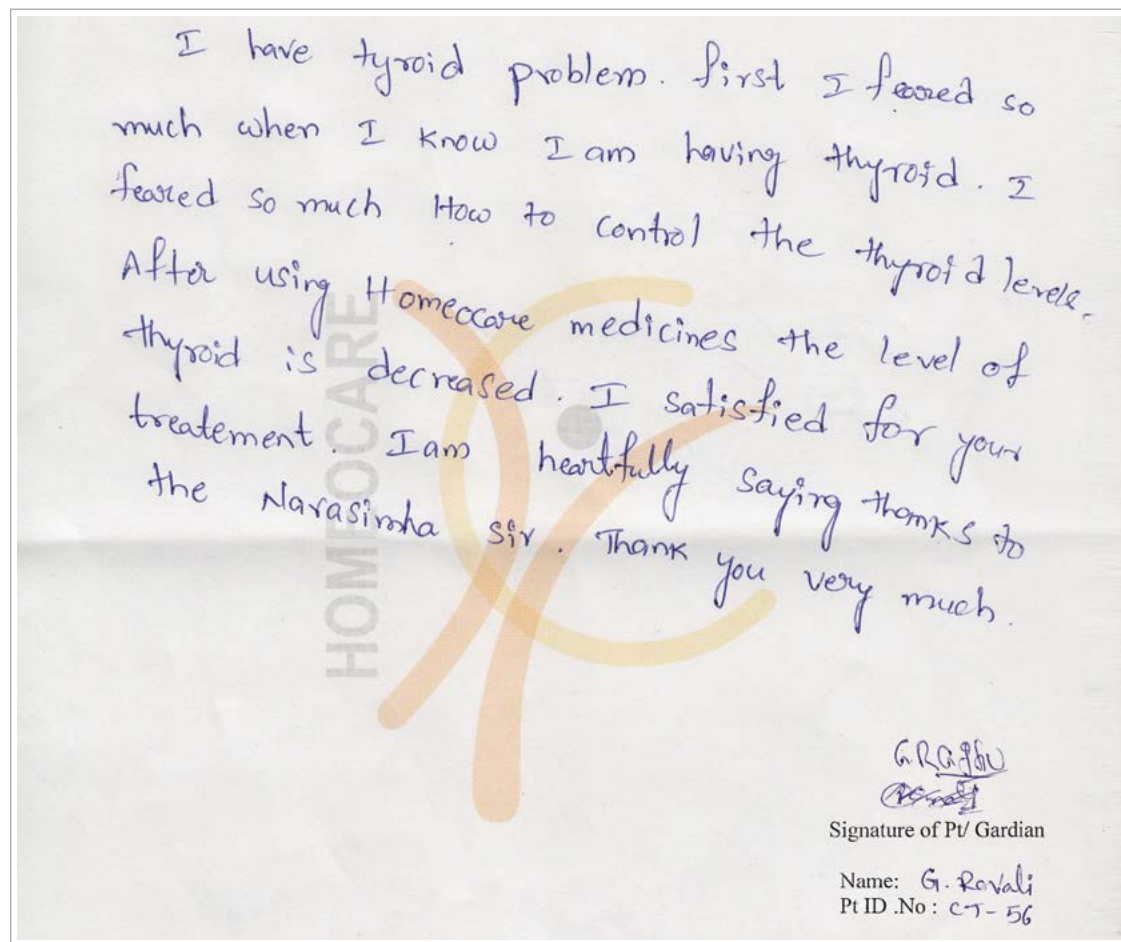 I have tyroid problem. first I feared so
much when I know I am having thyroid. I
feared so much How to control the thyroid levels.
After using Homeocare medicines the level of
thyroid is decreased. I satisfied for your
treatement. I am heartfully saying thanks to
the Narasimha sir. Thank you very much.
HOMEOCARE
Signature of Pt/ Gardian
Name: G. Ravali
Pt ID .No : CT-56